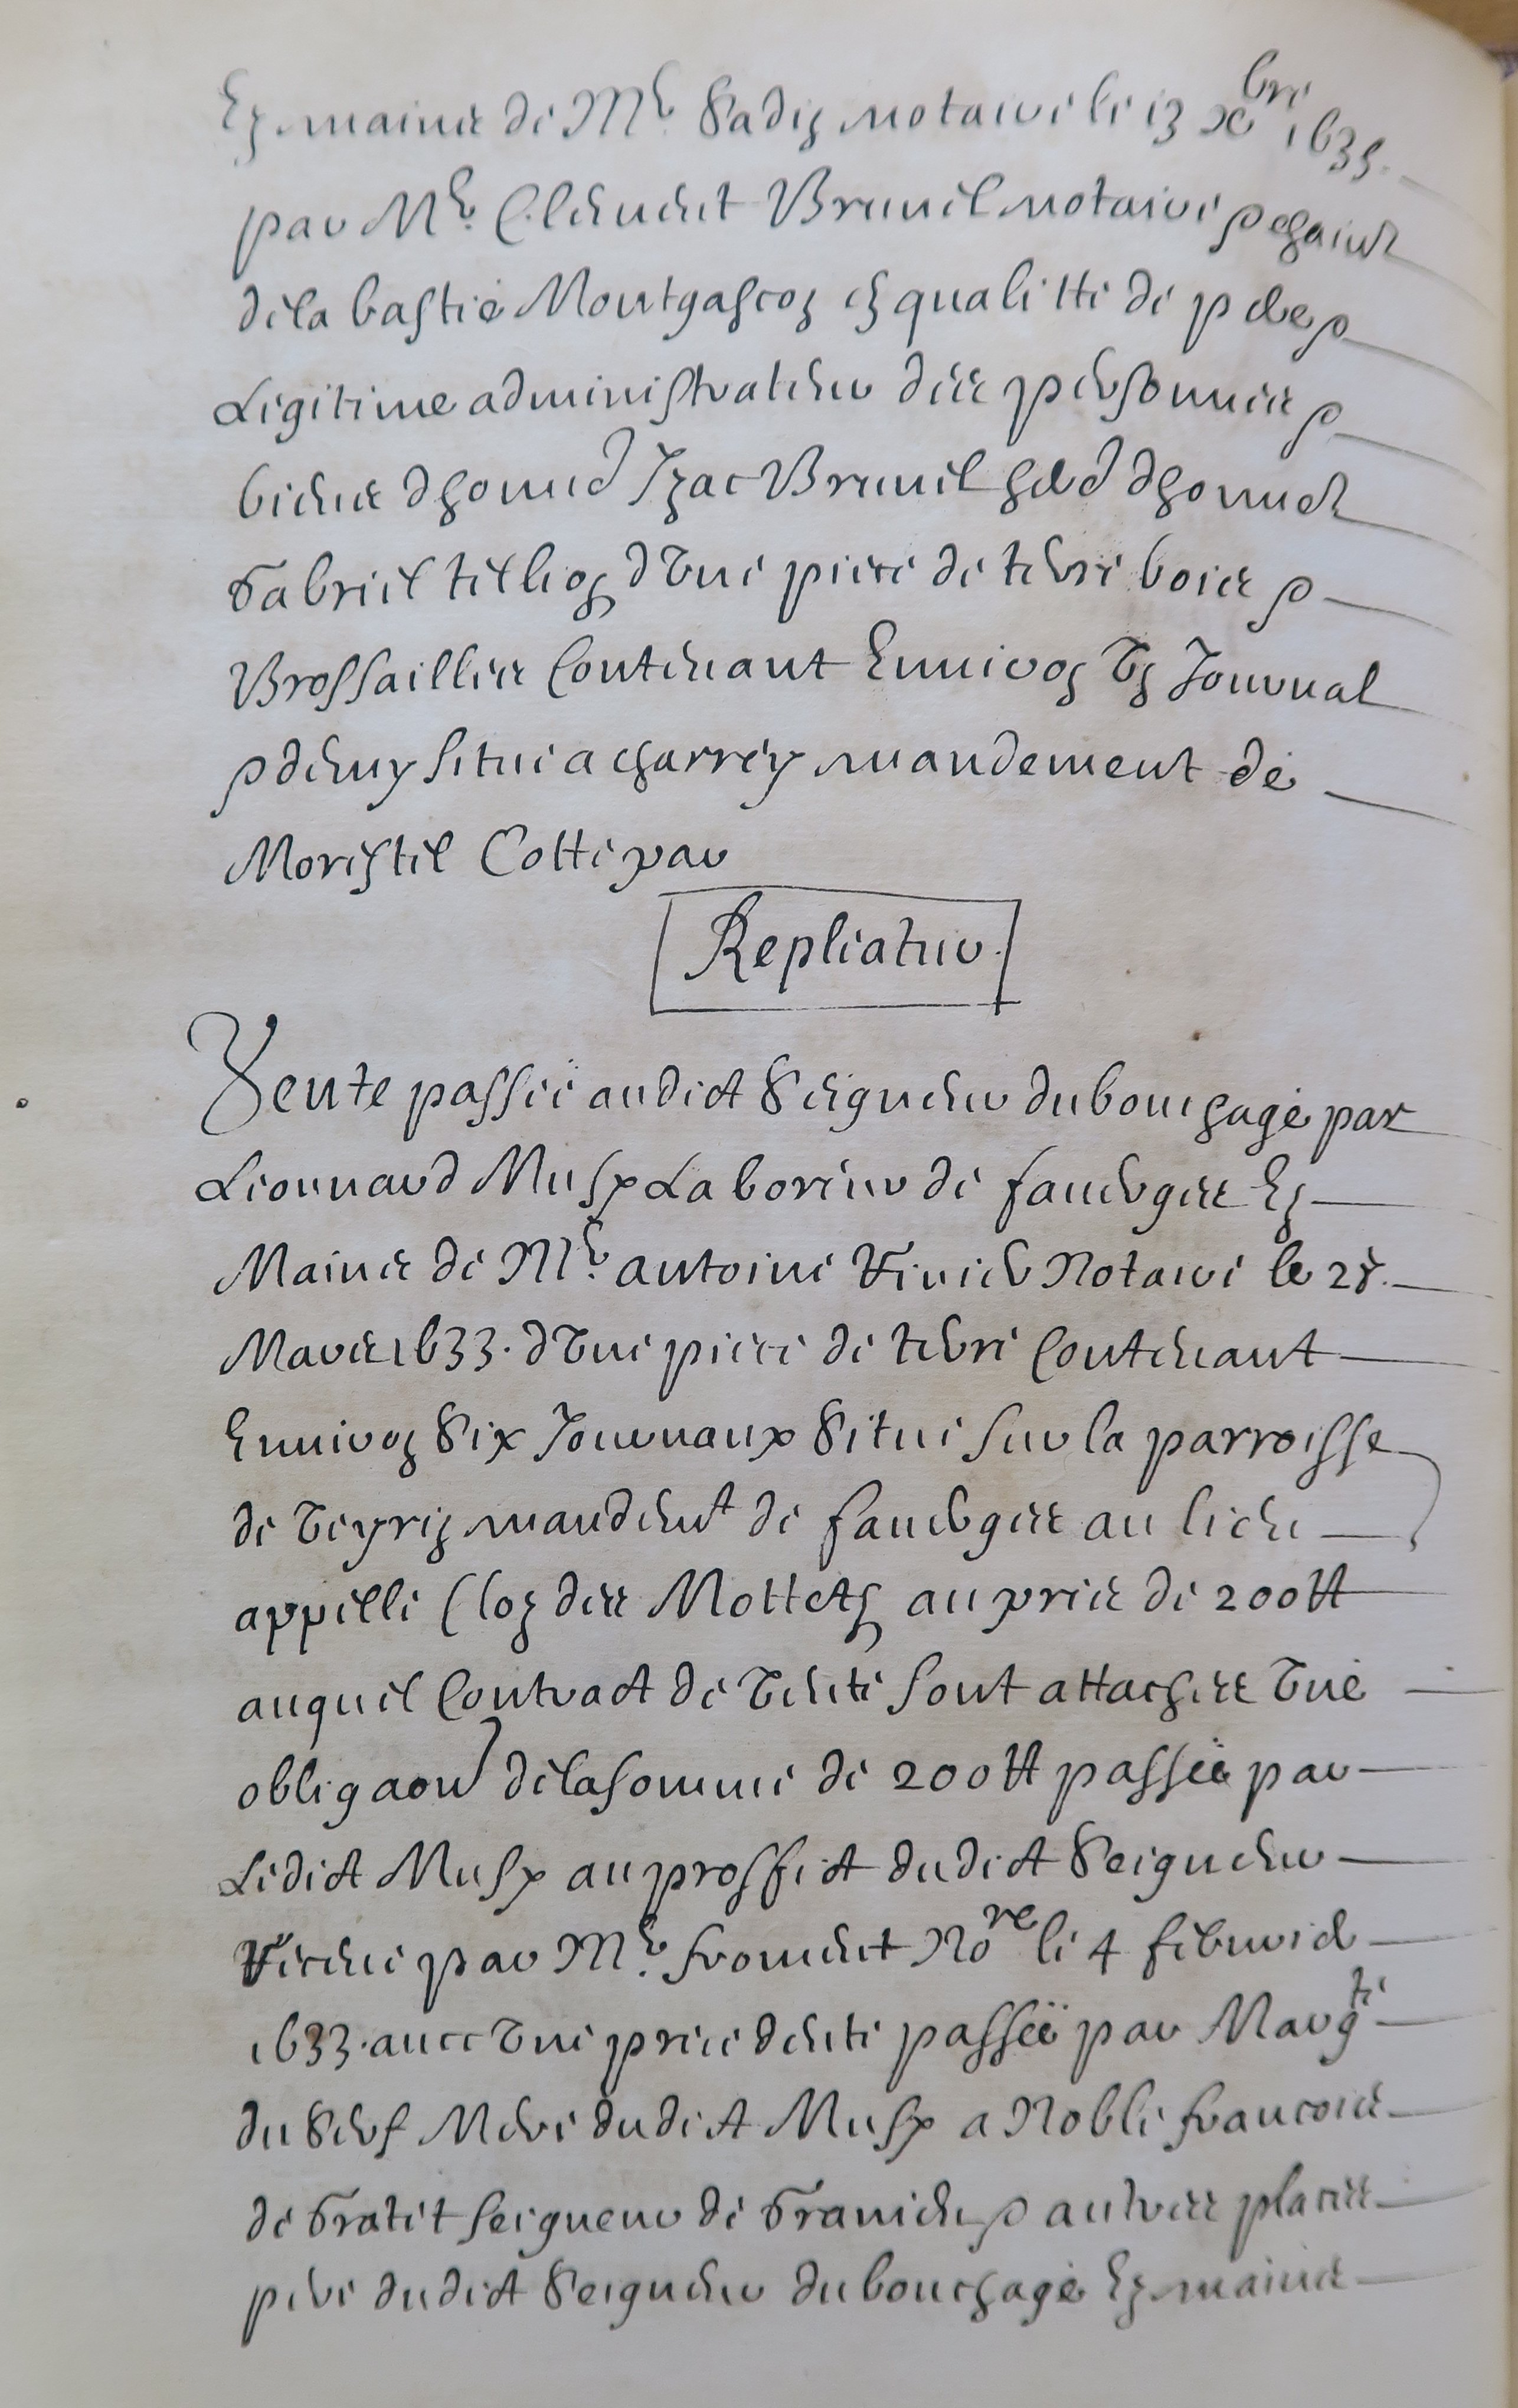 Es mains de Me. Sadin notaire le 13 xbre 1635.
par Me. Clement Breuil notaire & chat
de la bastie Montgascon en qualitté de pere &
Legitime administrateur des personnes &
biens dhonn Izac Breuil her dhonne
Gabriel tillion d'vne piece de terre bois &
Brossailles Contenant Environ vn Journal
& demy situé a charrey mandement de
Morestel Cotté par
Repliatur.
Vente passée audict Seigneur du bouchage par
Leonnard Musy Laboreur de faverges Es
Mains de Me. antoine Vivier Notaire le 28.
Mars 1633. d'vne piece de terre Contenant
Environ Six Journaux Situé sur la parroisse
de veyrin mandemt de faverges au lieu
appellé Clos des Mottets au prix de 200tt
auquel Contract de vente sont attachés vne
obligaon de la somme de 200tt passée par
Ledict Musy au proffict dudict Seigneur
Receue par Me. froment Nore le 4 febvrier
1633. avec vne precedente passée par Margte
du Serf Mere dudict Musy a Noble francois
de Gratet seigneur de Granieu & autres places
pere dudict Seigneur du bouchage Es mains